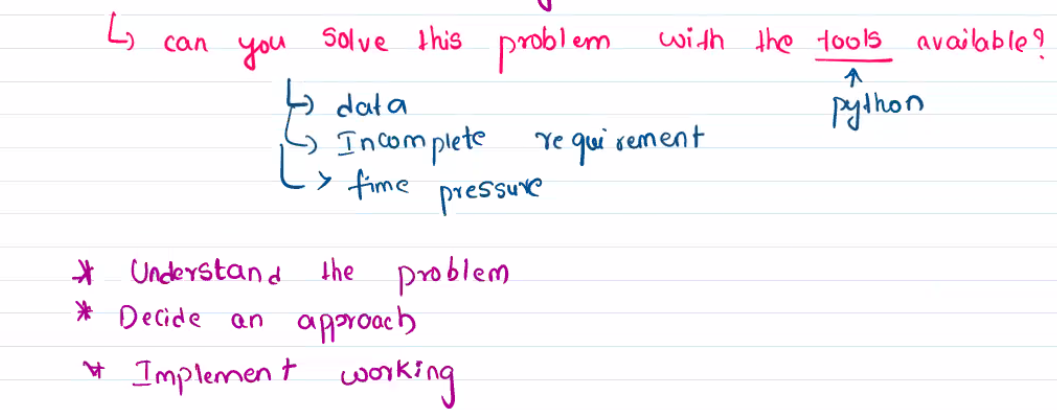 ↳ can you solve this problem with the tools available?
↑
python
↳ data
↳ Incomplete requirement
↳ time pressure
* Understand the problem
* Decide an approach
* Implement working